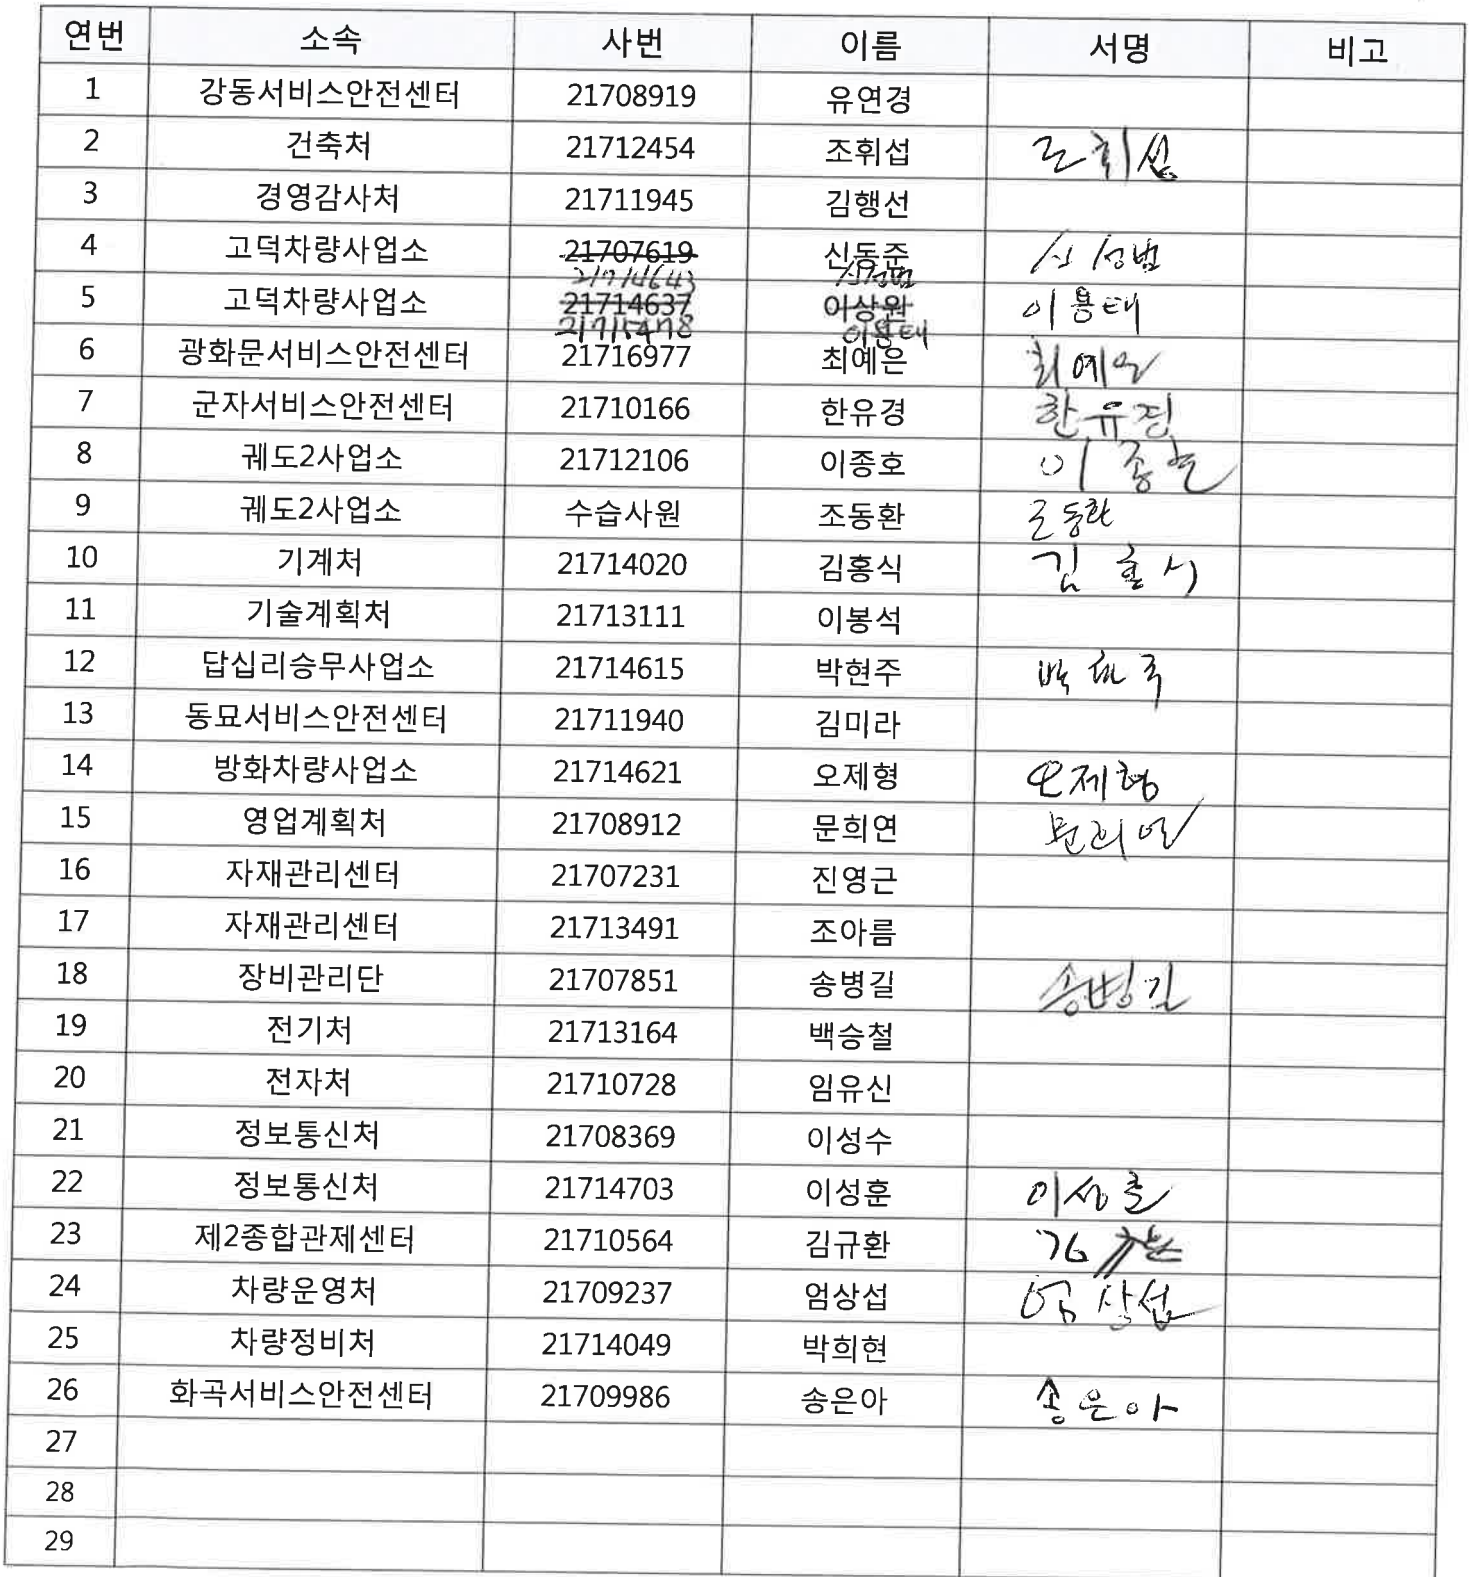 연번 소속 사번 이름 서명 비고
1 강동서비스안전센터 21708919 유연경
2 건축처 21712454 조휘섭 조휘섭
3 경영감사처 21711945 김행선
4 고덕차량사업소 21707619 신동준 신성범
21714643 신성범
5 고덕차량사업소 21714637 이상원 이용태
21715478 이용태
6 광화문서비스안전센터 21716977 최예은 최예은
7 군자서비스안전센터 21710166 한유경 한유경
8 궤도2사업소 21712106 이종호 이종호
9 궤도2사업소 수습사원 조동환 조동환
10 기계처 21714020 김홍식 김홍식
11 기술계획처 21713111 이봉석
12 답십리승무사업소 21714615 박현주 박현주
13 동묘서비스안전센터 21711940 김미라
14 방화차량사업소 21714621 오제형 오제형
15 영업계획처 21708912 문희연 문희연
16 자재관리센터 21707231 진영근
17 자재관리센터 21713491 조아름
18 장비관리단 21707851 송병길 송병길
19 전기처 21713164 백승철
20 전자처 21710728 임유신
21 정보통신처 21708369 이성수
22 정보통신처 21714703 이성훈 이성훈
23 제2종합관제센터 21710564 김규환 김규환
24 차량운영처 21709237 엄상섭 엄상섭
25 차량정비처 21714049 박희현
26 화곡서비스안전센터 21709986 송은아 송은아
27
28
29